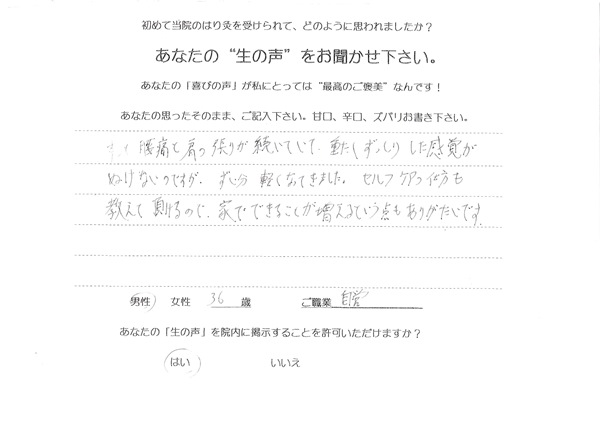 初めて当院のはり灸を受けられて、どのように思われましたか？
あなたの“生の声”をお聞かせ下さい。
あなたの「喜びの声」が私にとっては“最高のご褒美”なんです！
あなたの思ったそのまま、ご記入下さい。甘口、辛口、ズバリお書き下さい。
腰痛と肩の張りが続いていて、重たくずっしりした感覚が
ぬけないのですが、ずい分軽くなってきました。セルフケアの仕方も
教えて頂けるので、家でできることが増えるという点もありがたいです。
男性 女性 36 歳 ご職業 自営
あなたの「生の声」を院内に掲示することを許可いただけますか？
はい いいえ